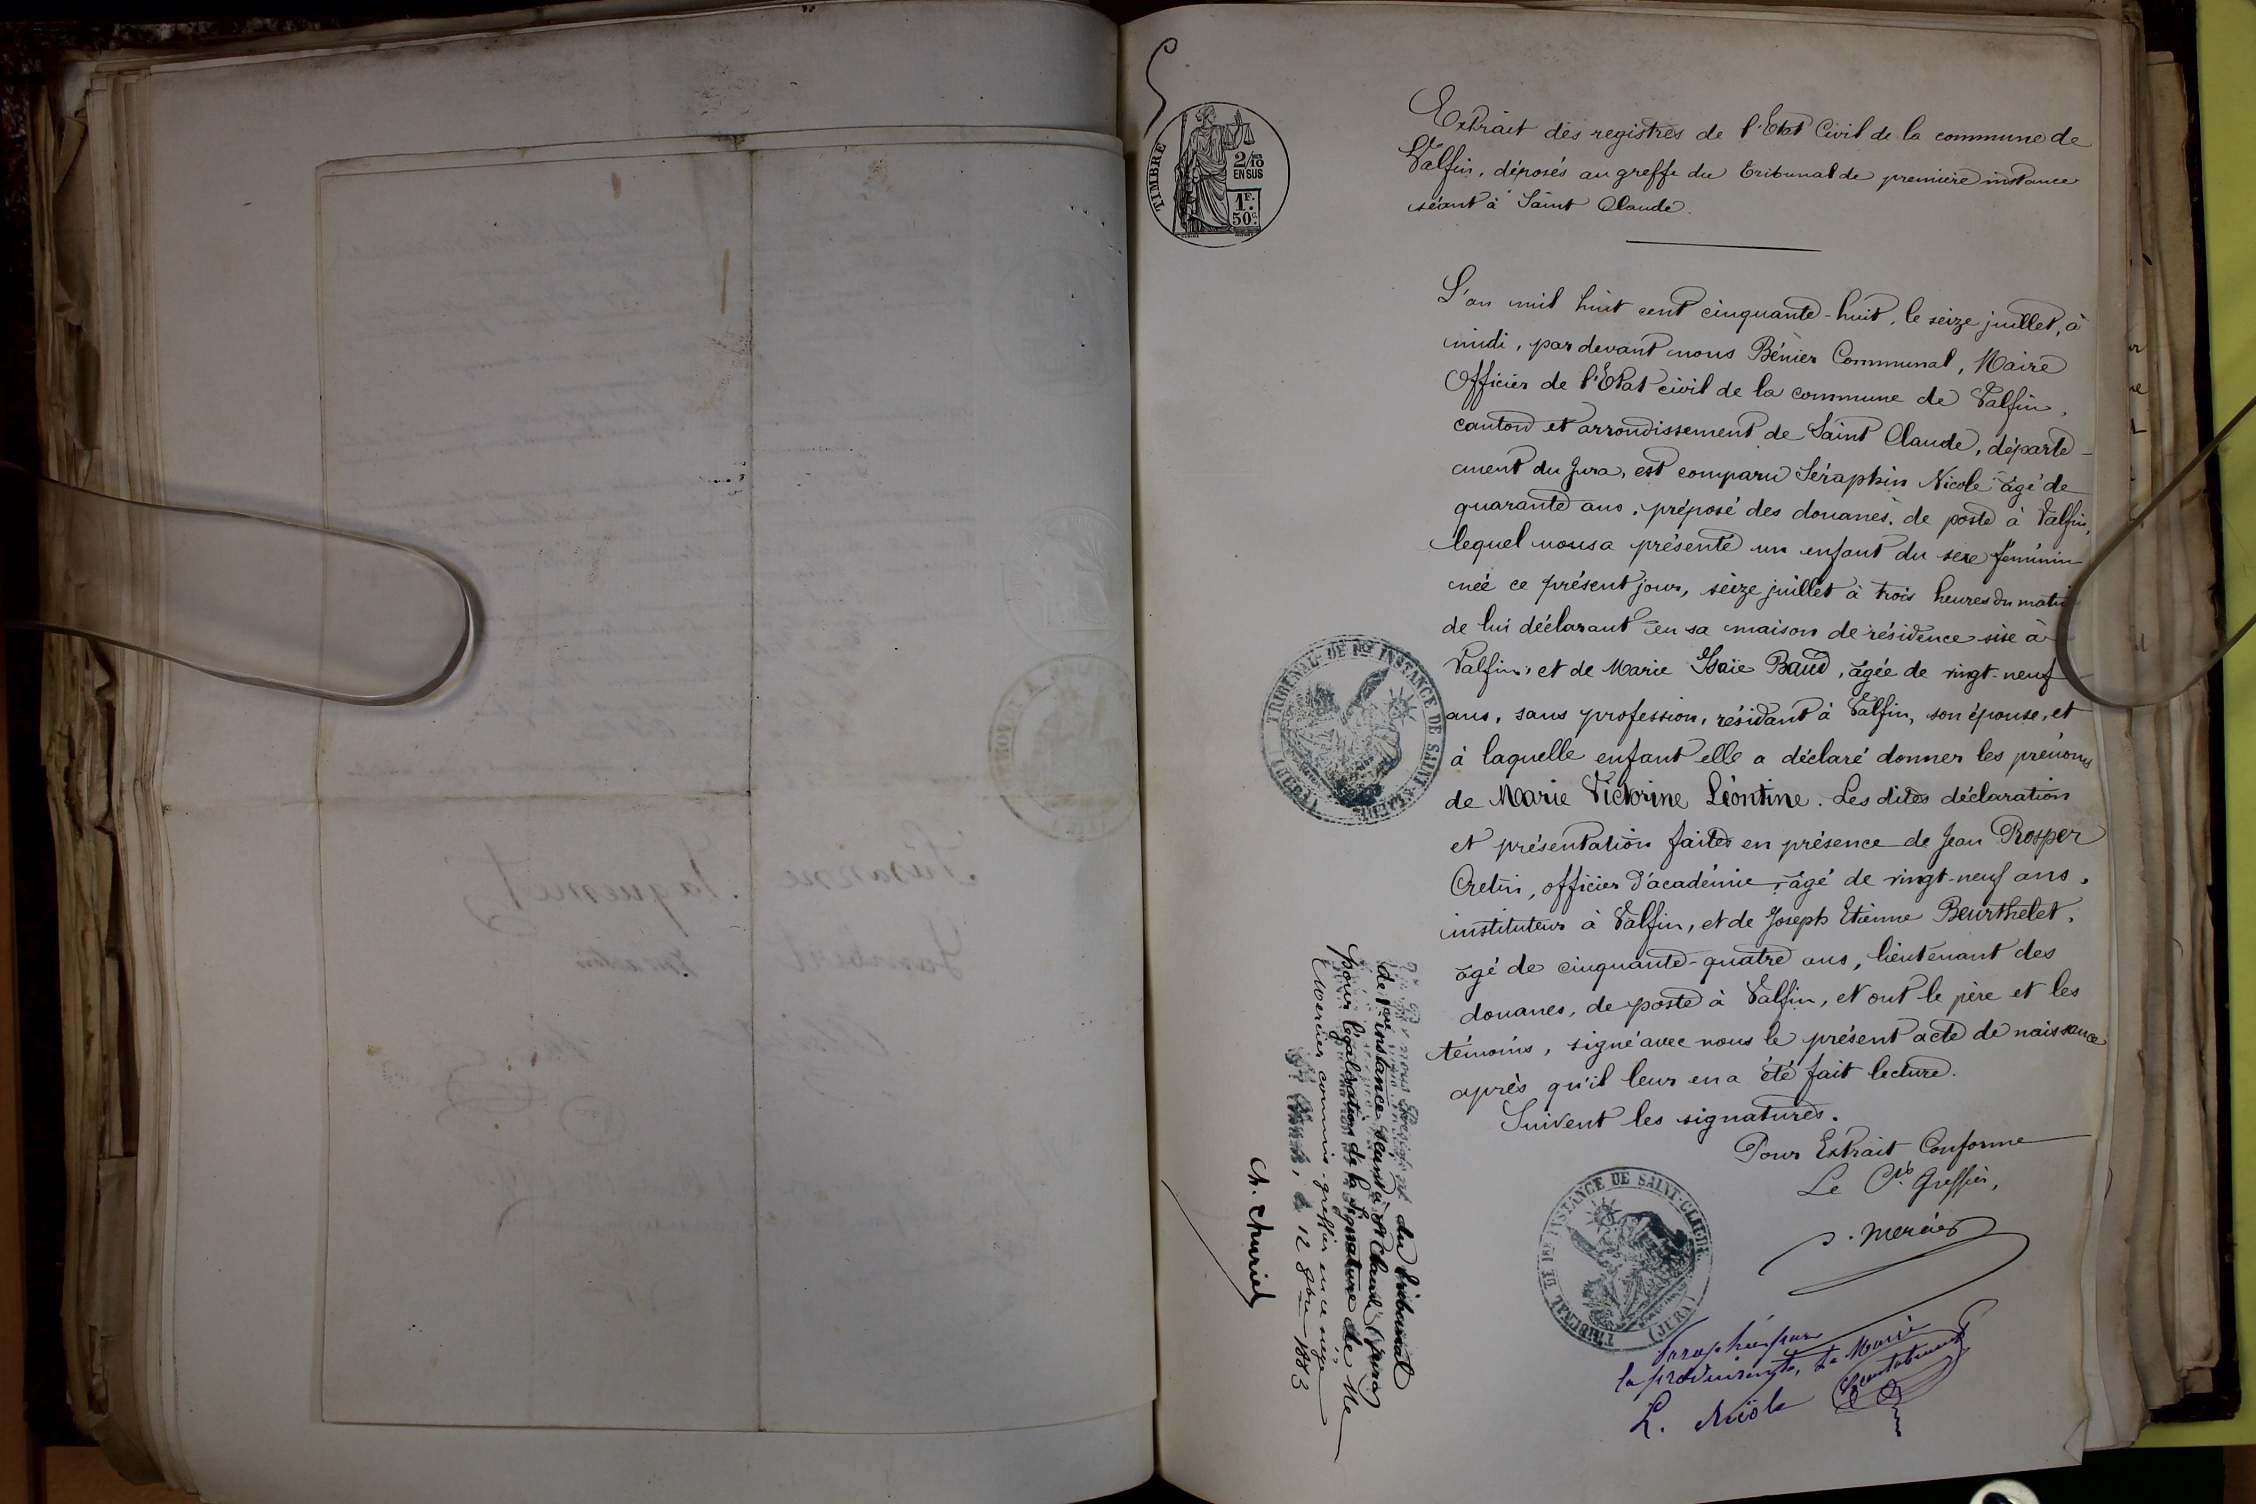 TIMBRE
2/10 EN SUS
1F. 50c.
Extrait des registres de l'Etat Civil de la commune de
Valfin, déposés au greffe du tribunal de première instance
séant à Saint Claude.
L'an mil huit cent cinquante-huit, le seize juillet, à
midi, par devant nous Bénier Communal, Maire
Officier de l'Etat civil de la commune de Valfin,
canton et arrondissement de Saint Claude, départe-
ment du Jura, est comparu Séraphin Nicole âgé de
quarante ans, préposé des douanes, de poste à Valfin,
lequel nous a présenté un enfant du sexe féminin
née ce présent jour, seize juillet à trois heures du matin
de lui déclarant en sa maison de résidence sise à
Valfin, et de Marie Isaïe Baud, âgée de vingt-neuf
ans, sans profession, résidant à Valfin, son épouse, et
à laquelle enfant elle a déclaré donner les prénoms
de Marie Victorine Léontine. Les dites déclaration
et présentation faites en présence de Jean Prosper
Cretin, officier d'académie, âgé de vingt-neuf ans,
instituteur à Valfin, et de Joseph Etienne Beurthelet,
âgé de cinquante-quatre ans, lieutenant des
douanes, de poste à Valfin, et ont le père et les
témoins, signé avec nous le présent acte de naissance
après qu'il leur en a été fait lecture.
Suivent les signatures.
Pour Extrait Conforme
Le Cis Greffier,
J. Mercier
TRIBUNAL DE 1re INSTANCE DE SAINT-CLAUDE
(JURA)
TRIBUNAL DE 1re INSTANCE DE SAINT-CLAUDE
(JURA)
nous Président du tribunal
de 1ère instance séant à St Claude (Jura)
pour légalisation de la signature de Me
Mercier commis-greffier en ce siège
St Claude, le 12 9bre 1883
Paraphé par
la produisante, Le Maire
L. Nicole